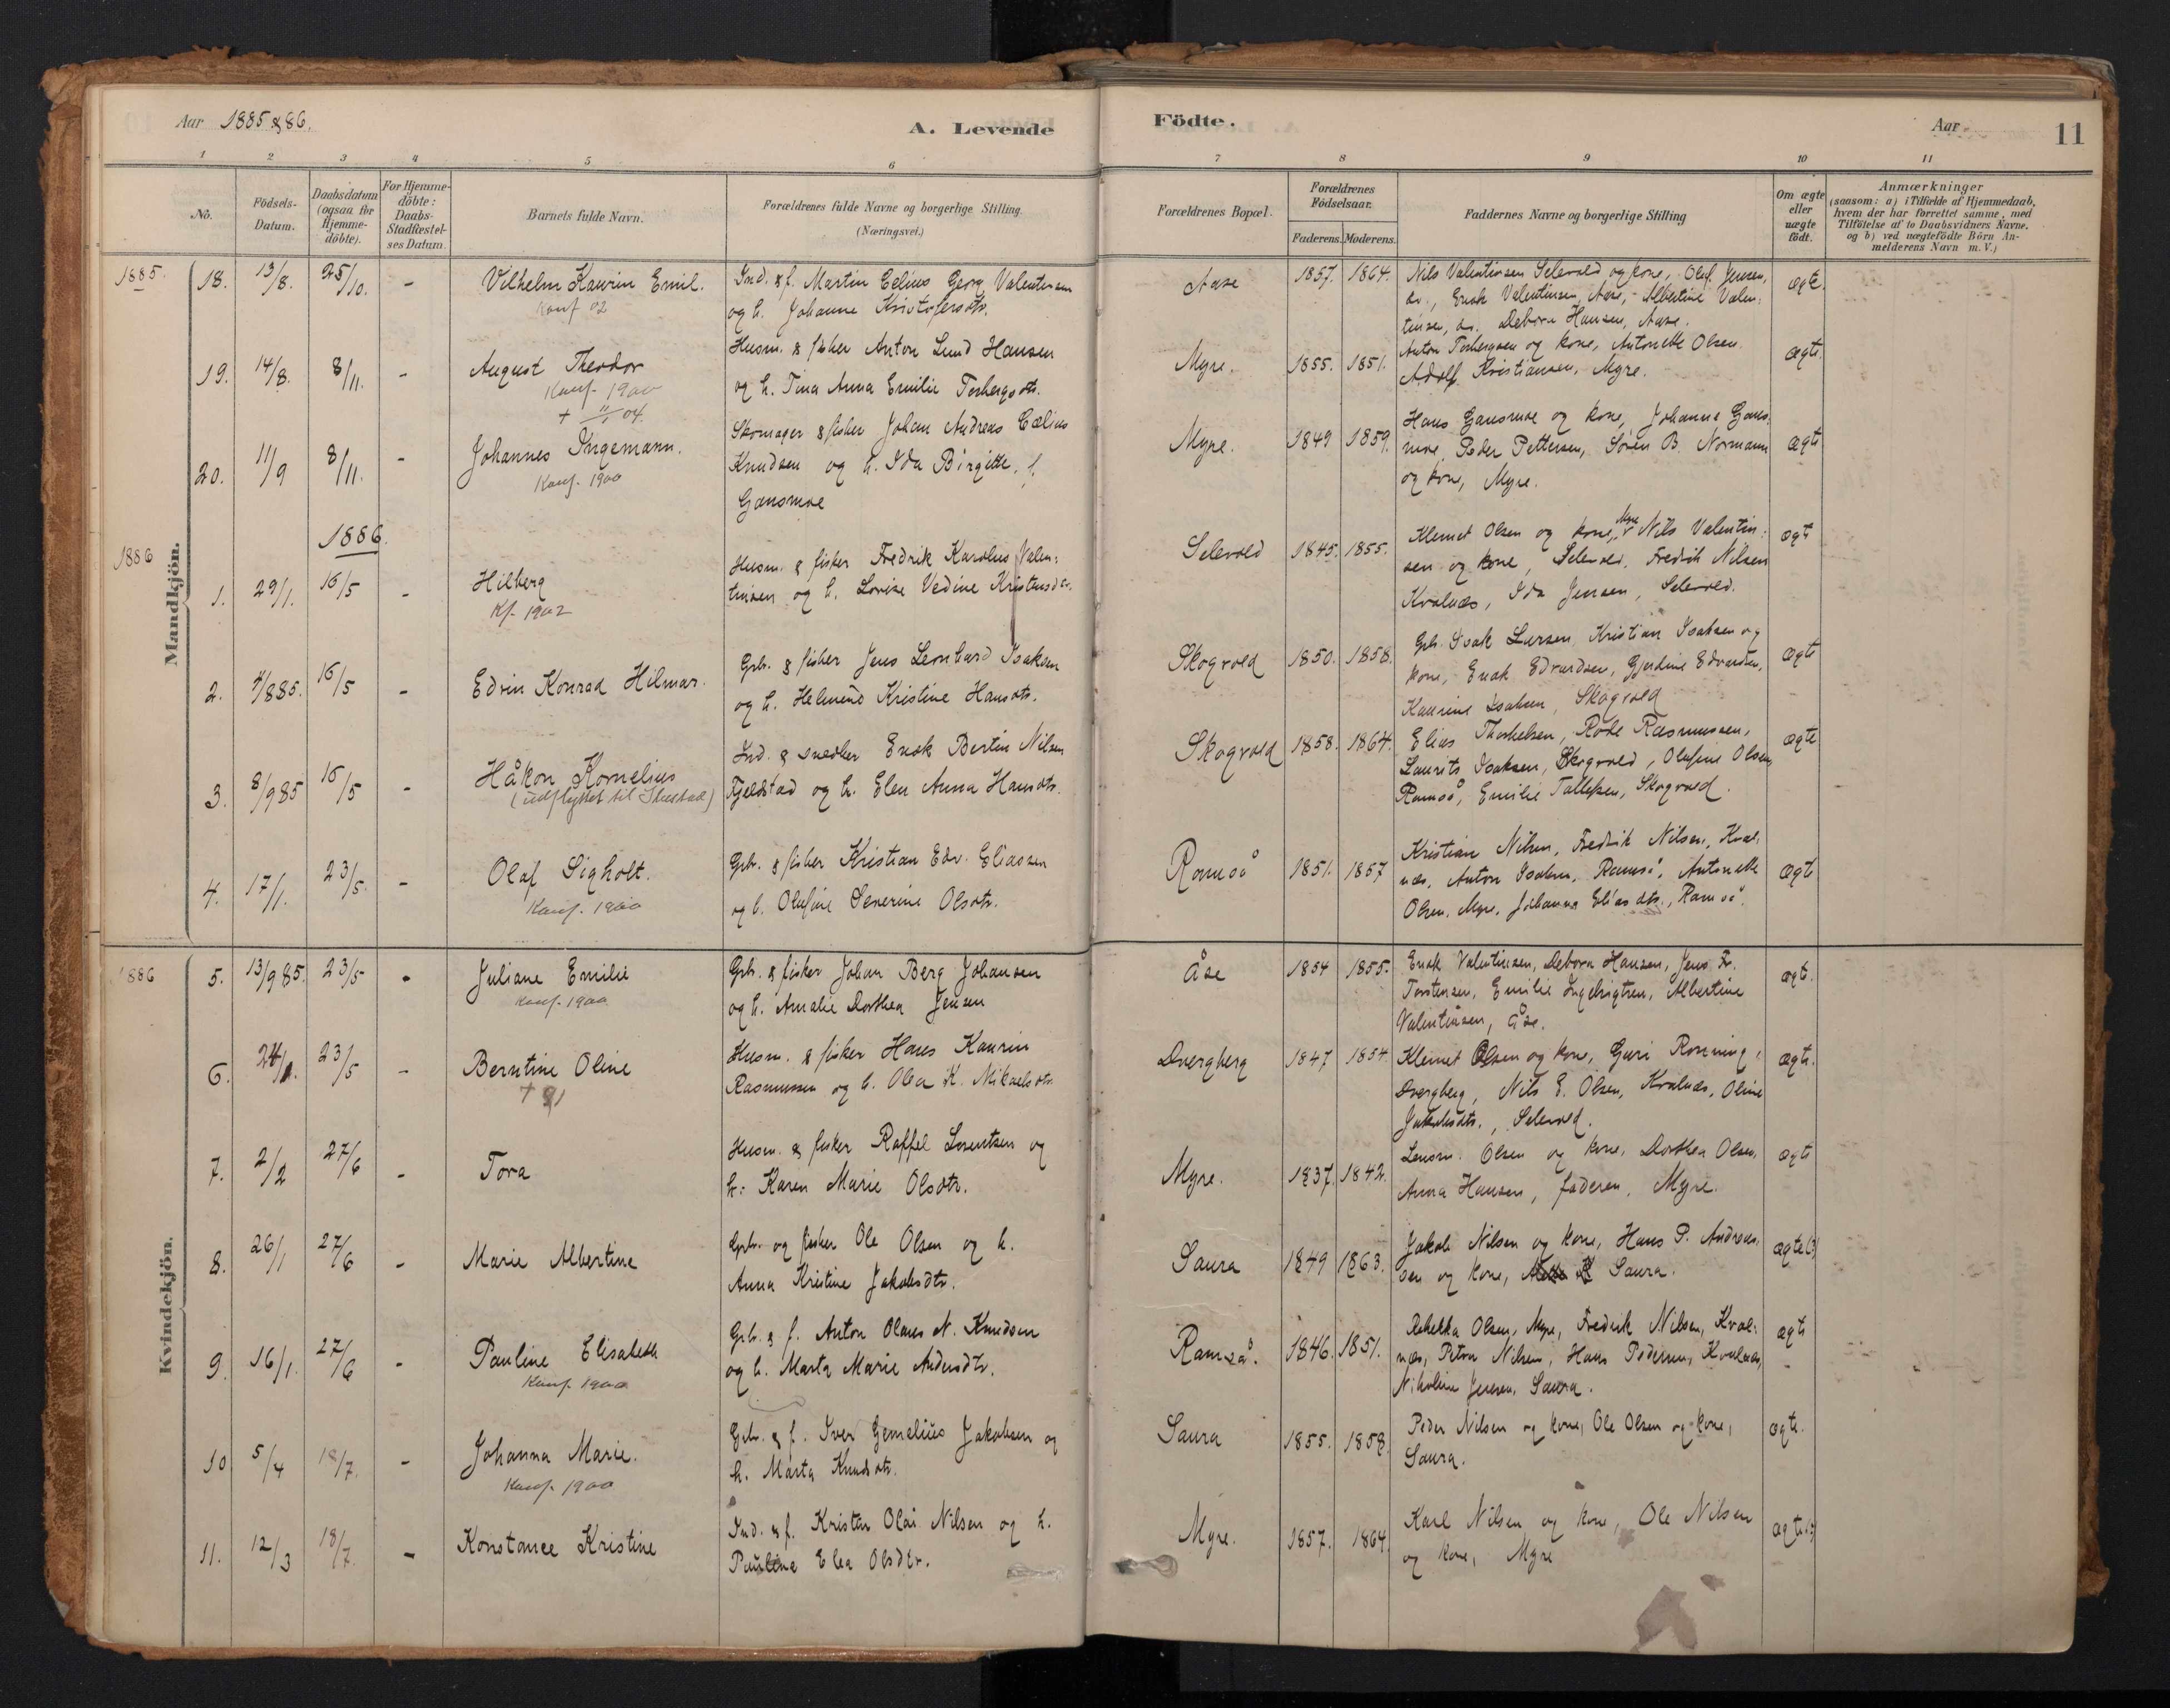 Aar 1885 & 86.
A. Levende
Födte.
Aar
11
1 2 3 4 5 6 7 8 9 10 11
No.
Födsels-Datum.
Daabsdatum (ogsaa for Hjemme-döbte).
For Hjemme-döbte: Daabs-Stadfæstel-ses Datum.
Barnets fulde Navn.
Forældrenes fulde Navne og borgerlige Stilling. (Næringsvei.)
Forældrenes Bopæl.
Forældrenes Födselsaar.
Faderens. Moderens.
Faddernes Navne og borgerlige Stilling
Om ægte eller uægte födt.
Anmærkninger
(saasom: a) i Tilfælde af Hjemmedaab,
hvem der har forrettet samme, med
Tilföielse af to Daabsvidners Navne.
og b) ved uægtefödte Börn An-
melderens Navn m. V.)
Mandkjön.
1885.
18. 13/8. 25/10. - Vilhelm Kaurin Emil.
Konf 02
Ind. & f. Martin Edius Georg Valentinsen
og h. Johanne Kristofersdtr.
Aase 1857. 1864.
Nils Valentinsen Selevold og kone, Oluf Jensen,
do., Enok Valentinsen, Aase, Albertine Valen-
tinsen, do. Debora Hansen, Aase.
ægte.
19. 14/8. 8/11. - August Theodor
Konf. 1900
+ 11/1 04.
Husm. & fisker Anton Lund Hansen
og h. Tina Anna Emilie Torbergsdtr.
Myre. 1855. 1851.
Anton Torbergsen og kone, Antonette Olsen.
Adolf Kristiansen, Myre.
ægte.
20. 11/9 8/11. - Johannes Ingemann.
Konf. 1900
Skomager & fisker Johan Andreas Cælius
Knudsen og h. Ida Birgitte, f.
Gansmoe
Myre. 1849 1859.
Hans Gansmoe og kone, Johanna Gans-
moe, Peder Pettersen, Sören B. Normann
og kone, Myre.
ægte
1886.
1886
1. 29/1. 16/5 - Hilberg
Kf. 1902
Husm. & fisker Fredrik Karolus Valen-
tinsen og h. Lovise Vedine Kristensdtr.
Selevold 1845. 1855.
Klemet Olsen og kone, Myre, Nils Valentin-
sen og kone, Selevold, Fredrik Nilsen
Kvalnæs, Ida Jensen, Selevold.
ægte
2. 4/8 85. 16/5 - Edvin Konrad Hilmar.
Grb. & fisker Jens Leonhard Isaksen
og h. Helmine Kristine Hansdtr.
Skogvold 1850. 1858.
Grb. Isak Larsen, Kristian Isaksen og
kone, Enok Edvardsen, Gjerdine Edvardsen,
Kaurine Isaksen, Skogvold
ægte
3. 8/9 85 16/5 - Håkon Kornelius
(udflyttet til )
Ind. & snedker Enok Bertin Nilsen
Fjeldstad og h. Elen Anna Hansdtr.
Skogvold 1858. 1864.
Elias Thorkelsen, Rode Rasmussen,
Laurits Isaksen, Skogvold, Olufine Olsen,
Ramså, Emilie Tollefsen, Skogvold.
ægte
4. 17/1. 23/5. - Olaf Sigholt.
Konf. 1900
Grb. & fisker Kristian Edv. Eliassen
og h. Olufine Severine Olsdtr.
Romså 1851. 1857
Kristian Nilsen, Fredrik Nilsen, Kval-
næs, Anton Isaksen, Ramså, Antonette
Olsen, Myre, Johanna Eliasdtr., Ramså.
ægte
Kvindekjön.
1886
5. 13/9 85. 23/5 - Juliane Emilie
Konf. 1900
Grb. & fisker Johan Berg Johansen
og h. Amalie Dorthea Jensen
Åse 1854 1855.
Enok Valentinsen, Debora Hansen, Jens Fr.
Torstensen, Emilie Ingebrigtsen, Albertine
Valentinsen, Åse.
ægte.
6. 24/1. 23/5 - Berntine Oline
+ 91
Husm. & fisker Hans Kaurin
Rasmussen og h. Olea K. Mikaelsdtr.
Dvergberg 1847 1854
Klemet Olsen og kone, Guri Ronning,
Dvergberg, Nils E. Olsen, Kvalnæs, Oline
Jakobsdtr., Selevold.
ægte.
7. 2/2 27/6 - Tora
Husm. & fisker Raffel Lorentsen og
h: Karen Marie Olsdtr.
Myre. 1837. 1842.
Lensm. Olsen og kone, Dorthea Olsen,
Anna Hansen, faderen, Myre.
ægte
8. 26/1 27/6 - Marie Albertine
Grb. og fisker Ole Olsen og h.
Anna Kristine Jakobsdtr.
Saura 1849 1863.
Jakob Nilsen og kone, Hans P. Andreas-
sen og kone, Saura.
ægte (?)
9. 16/1. 27/6 - Pauline Elisabeth
Konf. 1900
Grb. & f. Anton Olaus N. Knudsen
og h. Marta Marie Andersdtr.
Ramså. 1846. 1851.
Rebekka Olsen, Myre, Fredrik Nilsen, Kval-
næs, Petra Nilsen, Hans Pedersen, Kvalnæs,
Nikoline Jensen, Saura.
ægte
10 5/4 18/7. - Johanna Marie.
Konf. 1900
Grb. & f. Iver Gemelius Jakobsen og
h. Marta Knudsdtr.
Saura 1855. 1858.
Peder Nilsen og kone, Ole Olsen og kone,
Saura.
ægte.
11. 12/3 18/7. - Konstance Kristine
Ind. & f. Kristen Olai Nilsen og h.
Pauline Elea Olsdtr.
Myre. 1857. 1864.
Karl Nilsen og kone, Ole Nilsen
og kone, Myre
ægte (?)